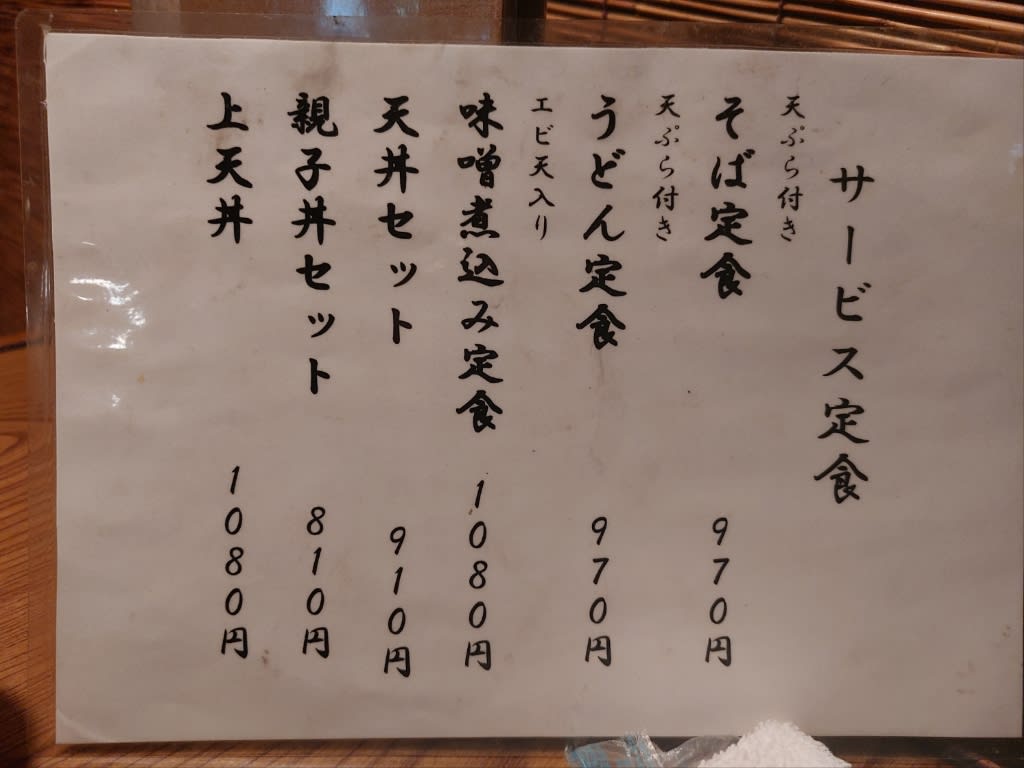 サービス定食
天ぷら付き
そば定食 970円
天ぷら付き
うどん定食 970円
エビ天入り
味噌煮込み定食 1080円
天丼セット 910円
親子丼セット 810円
上天丼 1080円